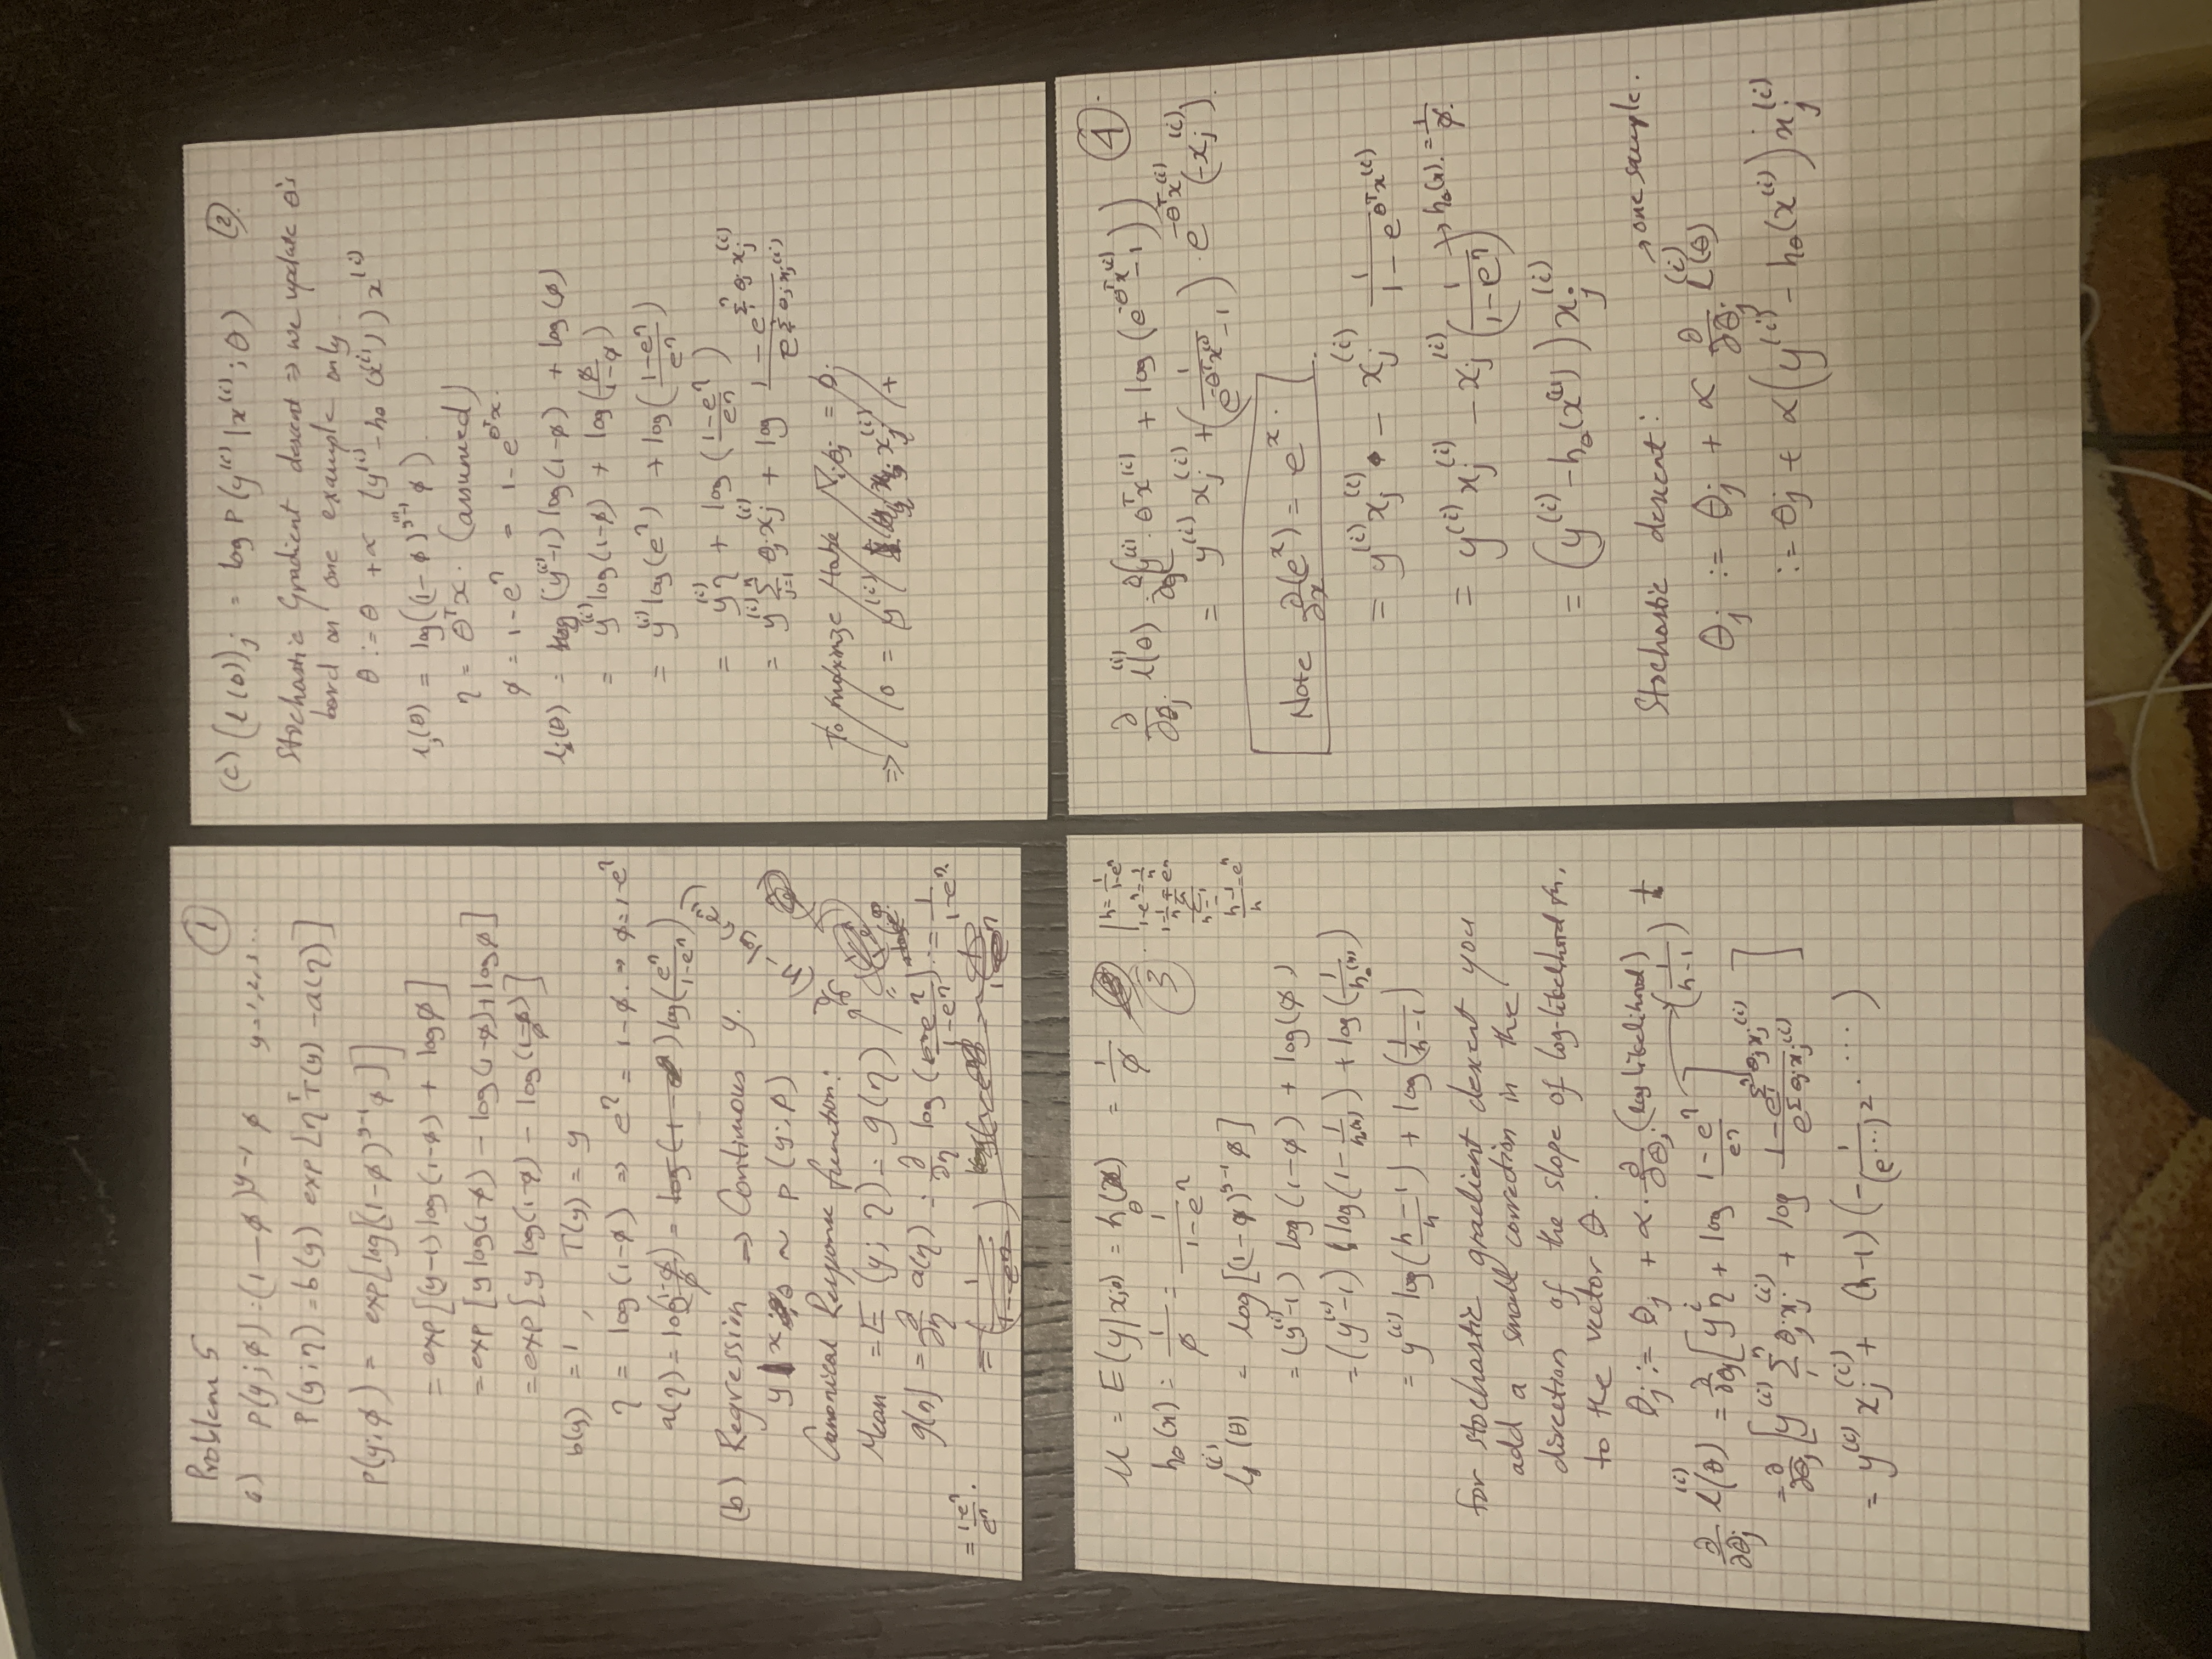 Problem 5 ①
a) p(y;φ) : (1-φ)^{y-1} φ y=1,2,3...
P(y;η) = b(y) exp[η^T T(y) - a(η)]
p(y;φ) = exp[log[(1-φ)^{y-1} φ]]
= exp[(y-1) log(1-φ) + log φ]
= exp[y log(1-φ) - log(1-φ) + log φ]
= exp[y log(1-φ) - log(\frac{1-φ}{φ})]
b(y) = 1, T(y) = y
η = log(1-φ) ⇒ e^η = 1-φ. ⇒ φ=1-e^η
a(η) = log(\frac{1-φ}{φ}) = log(\frac{e^η}{1-e^η})
(b) Regression ⇒ Continuous y.
y | x; θ ~ p(y; φ)
Canonical Response function:
Mean = E(y; η) = g(η)
∂/∂η (η - log(1-e^η))
g(η) = ∂/∂η a(η) = ∂/∂η log(\frac{e^η}{1-e^η}) = \frac{1}{1-e^η}.
= \frac{1-e^η}{e^η}.
(c) (l(θ))_j = log p(y^{(i)} | x^{(i)}; θ) ②
Stochastic Gradient descent ⇒ we update θ's
based on one example only.
θ := θ + α (y^{(i)} - h_θ(x^{(i)})) x^{(i)}
l_j(θ) = log((1-φ)^{y^{(i)}-1} φ).
η = θ^T x. (assumed)
φ = 1-e^η = 1-e^{θ^T x}.
l_j(θ) = (y^{(i)}-1) log(1-φ) + log(φ)
= y^{(i)} log(1-φ) + log(\frac{φ}{1-φ})
= y^{(i)} log(e^η) + log(\frac{1-e^η}{e^η})
= y^{(i)} η + log(\frac{1-e^η}{e^η})
= y^{(i)} Σ_{j=1}^n θ_j x_j^{(i)} + log \frac{1-e^{Σ^n θ_j x_j^{(i)}}}{e^{Σ θ_j x_j^{(i)}}}
To maximize take
⇒ 0 = y^{(i)} x_j^{(i)} +
μ = E(y|x;θ) = h_θ(x) = \frac{1}{φ} ③
h_θ(x) = \frac{1}{φ} = \frac{1}{1-e^η}
h = \frac{1}{1-e^η}
1-e^η = \frac{1}{h}
1-\frac{1}{h} = e^η
\frac{h-1}{h} = e^η
l^{(i)}(θ) = log[(1-φ)^{y-1} φ]
= (y^{(i)}-1) log(1-φ) + log(φ)
= (y^{(i)}-1) log(1-\frac{1}{h_θ(x)}) + log(\frac{1}{h_θ(x)})
= y^{(i)} log(\frac{h-1}{h}) + log(\frac{1}{h-1})
for stochastic gradient descent you
add a small correction in the
direction of the slope of log-likelihood fn.
to the vector θ.
θ_j := θ_j + α · ∂/∂θ_j (log likelihood)
∂/∂θ_j l^{(i)}(θ) = ∂/∂θ_j [y^i η + log \frac{1-e^η}{e^η}] → (\frac{1}{h-1})
= ∂/∂θ_j [y^{(i)} Σ_1^n θ_j x_j^{(i)} + log \frac{1-e^{Σ_1^n θ_j x_j^{(i)}}}{e^{Σ θ_j x_j^{(i)}}}]
= y^{(i)} x_j^{(i)} + (h-1) (-\frac{1}{(e^{...})^2} · ...)
④
∂/∂θ_j l^{(i)}(θ) = ∂/∂θ_j (y^{(i)} · θ^T x^{(i)} + log(e^{-θ^T x^{(i)}} - 1))
= y^{(i)} x_j^{(i)} + (\frac{1}{e^{-θ^T x^{(i)}} - 1}) · e^{-θ^T x^{(i)}} (-x_j^{(i)}).
Note ∂/∂x (e^x) = e^x.
= y^{(i)} x_j^{(i)} - x_j^{(i)} \frac{1}{1-e^{θ^T x^{(i)}}}
= y^{(i)} x_j^{(i)} - x_j^{(i)} (\frac{1}{1-e^η}) → h_θ(x). = \frac{1}{φ}.
= (y^{(i)} - h_θ(x^{(i)})) x_j^{(i)}
Stochastic descent: → one sample.
θ_j := θ_j + α ∂/∂θ_j l^{(i)}(θ)
:= θ_j + α (y^{(i)} - h_θ(x^{(i)})) x_j^{(i)}